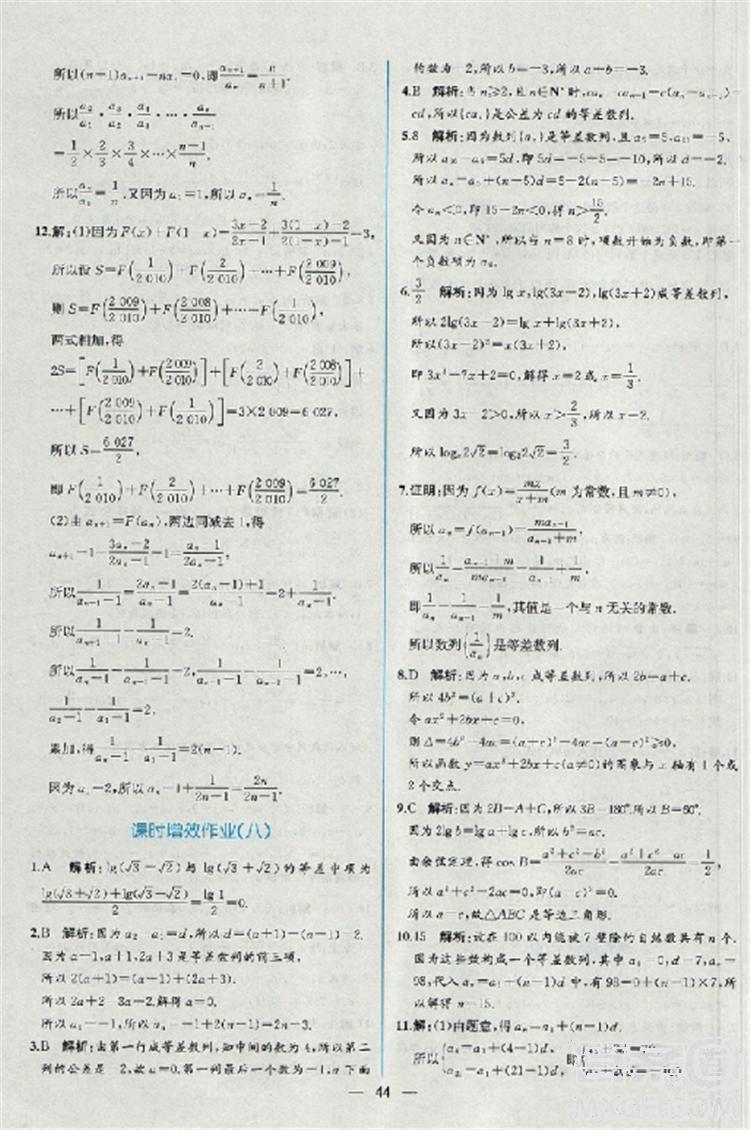 所以(n+1)aₙ₊₁-naₙ=0,即aₙ₊₁/aₙ=n/(n+1).
所以a₂/a₁·a₃/a₂·a₄/a₃·…·aₙ/aₙ₋₁
=1/2×2/3×3/4×…×(n-1)/n.
所以aₙ/a₁=1/n.又因为a₁=1,所以aₙ=1/n.
12.解:(1)因为F(x)+F(1-x)=(3x-2)/(2x-1)+(3(1-x)-2)/(2(1-x)-1)=3,
所以设S=F(1/2 010)+F(2/2 010)+…+F(2 009/2 010),
则S=F(2 009/2 010)+F(2 008/2 010)+…+F(1/2 010),
两式相加,得
2S=[F(1/2 010)+F(2 009/2 010)]+[F(2/2 010)+F(2 008/2 010)]
+…+[F(2 009/2 010)+F(1/2 010)]=3×2 009=6 027,
所以S=6 027/2,
即F(1/2 010)+F(2/2 010)+…+F(2 009/2 010)=6 027/2.
(2)由aₙ₊₁=F(aₙ),两边同减去1,得
aₙ₊₁-1=(3aₙ-2)/(2aₙ-1)-1=(aₙ-1)/(2aₙ-1).
所以1/(aₙ₊₁-1)=(2aₙ-1)/(aₙ-1)=(2(aₙ-1)+1)/(aₙ-1)=2+1/(aₙ-1).
所以1/(aₙ₊₁-1)-1/(aₙ-1)=2.
所以1/(aₙ-1)-1/(aₙ₋₁-1)=2,…,
1/(a₂-1)-1/(a₁-1)=2.
累加,得1/(aₙ-1)-1/(a₁-1)=2(n-1).
因为a₁=2,所以aₙ=1/(2n-1)+1=2n/(2n-1).
课时增效作业(八)
1.A 解析:lg(√3-√2)与lg(√3+√2)的等差中项为
lg(√3+√2)(√3-√2)/2=lg 1/2=0.
2.B 解析:因为d=a₂-a₁=(a+1)-(a-1)=2.
因为a-1,a+1,2a+3是等差数列的前三项,
所以2(a+1)=(a-1)+(2a+3).
所以2a+2=3a+2,解得a=0.
所以a₁=-1,aₙ=-1+(n-1)×2=2n-3.
3.B 解析:由第一行成等差数列,知中间的数为4,所以第二
列的公差是-2,故a=0.第一列最后一个数为1,所以下面
的数为-2,所以b=-3,所以a-b=3.
4.B 解析:当n≥2,且n∈N*时,caₙ-caₙ₋₁=c(aₙ-aₙ₋₁)=
cd,所以{caₙ}是公差为cd的等差数列.
所以lg(3x-2)²=lg x+lg(3x+2).
所以(3x-2)²=x(3x+2),
即3x²-7x+2=0,解得x=2或x=1/3.
又因为3x-2>0,所以x>2/3,所以x=2.
所以logₓ2√2=log₂2√2=3/2.
7.证明:因为f(x)=mx/(x+m)(m为常数,且m≠0),
所以aₙ=f(aₙ₋₁)=maₙ₋₁/(aₙ₋₁+m).
所以1/aₙ=(aₙ₋₁+m)/maₙ₋₁=1/m+1/aₙ₋₁,
即1/aₙ-1/aₙ₋₁=1/m,其值是一个与n无关的常数.
所以数列{1/aₙ}是等差数列.
8.D 解析:因为a,b,c成等差数列,所以2b=a+c.
所以4b²=(a+c)².
令ax²+2bx+c=0,
则Δ=4b²-4ac=(a+c)²-4ac=(a-c)²≥0.
所以函数y=ax²+2bx+c的图象与x轴有1个或
2个交点.
9.C 解析:因为2B=A+C,所以3B=180°,所以B=60°.
因为2lg b=lg a+lg c,所以b²=ac.
由余弦定理,得cos B=(a²+c²-b²)/2ac=(a²+c²-ac)/2ac=1/2,
所以a=c,故△ABC是等边三角形.
10.15 解析:设在100以内能被7整除的自然数共有n个.
因为这些数构成一个等差数列,
98,代入aₙ=a₁+(n-1)d,有98=0+(n-1)×7,所
以解得n=15.
11.解:(1)由题意,得aₙ=a₁+(n-1)d.
44